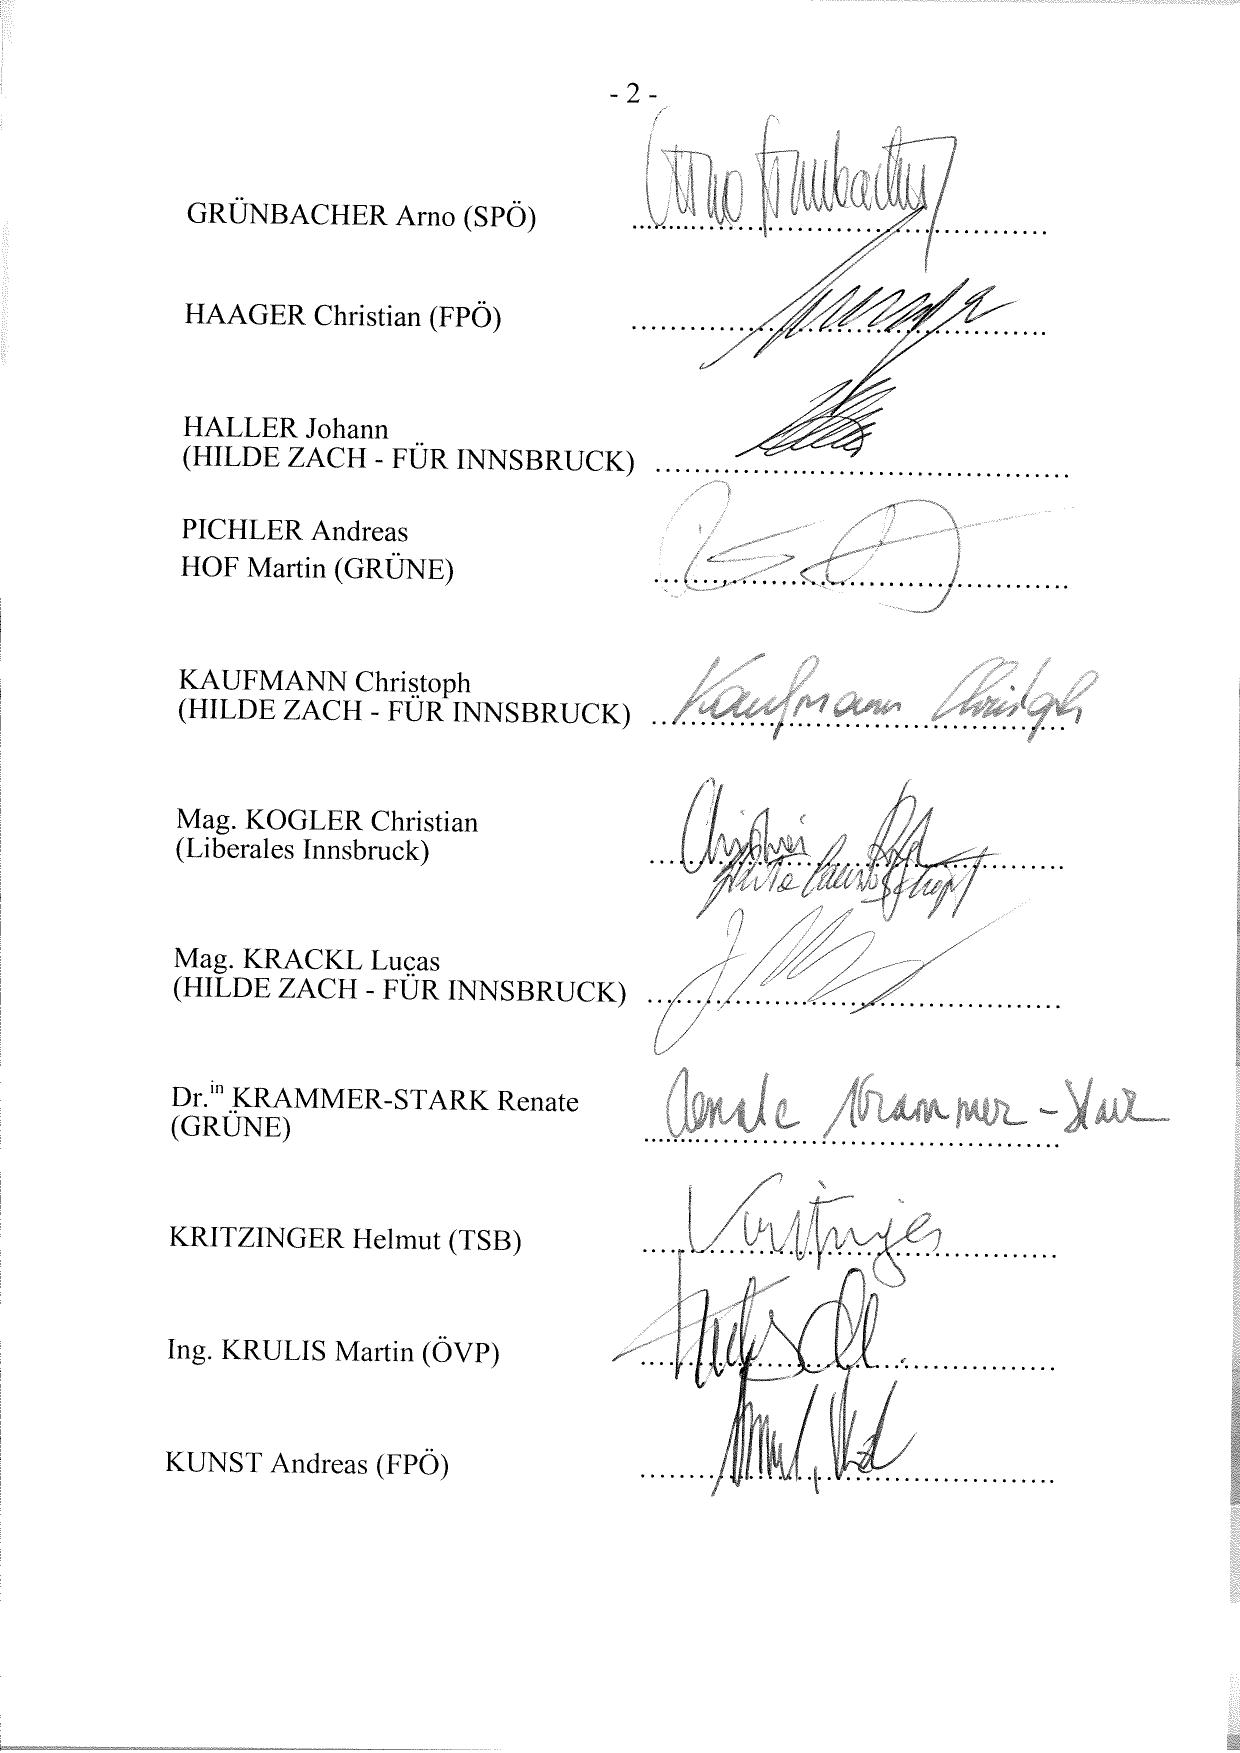 - 2 -
Arno Grünbacher
GRÜNBACHER Arno (SPÖ)
HAAGER Christian (FPÖ)
HALLER Johann
(HILDE ZACH - FÜR INNSBRUCK)
PICHLER Andreas
HOF Martin (GRÜNE)
KAUFMANN Christoph
(HILDE ZACH - FÜR INNSBRUCK) Kaufmann Christoph
Mag. KOGLER Christian
(Liberales Innsbruck)
Mag. KRACKL Lucas
(HILDE ZACH - FÜR INNSBRUCK)
Dr.in KRAMMER-STARK Renate Renate Krammer-Stark
(GRÜNE)
KRITZINGER Helmut (TSB) Kritzinger
Ing. KRULIS Martin (ÖVP)
KUNST Andreas (FPÖ)